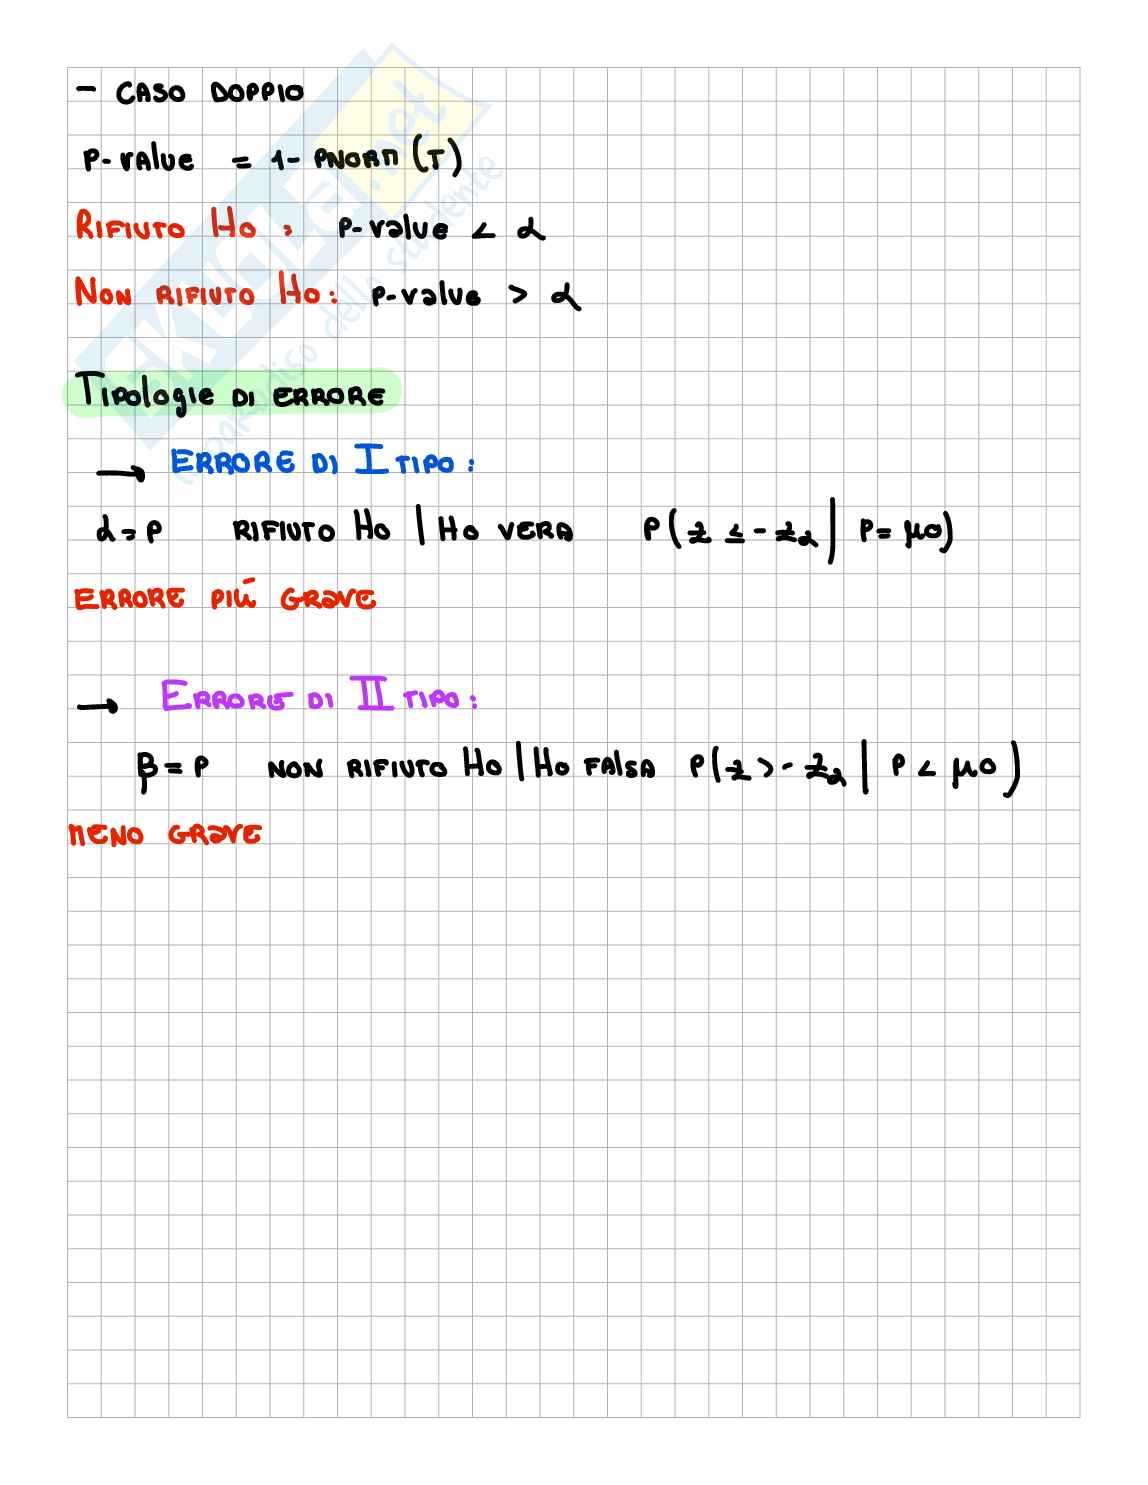 - CASO DOPPIO
P-VALUE = 1- PNORM (T)
RIFIUTO H0 : P-value < α
NON RIFIUTO H0: P-value > α
Tipologie DI ERRORE
→ ERRORE DI I TIPO:
α = P RIFIUTO H0 | H0 VERA P(z ≤ -zα | P = μ0)
ERRORE PIÚ GRAVE
→ ERRORE DI II TIPO:
β = P NON RIFIUTO H0 | H0 FALSA P(z > -zα | P < μ0)
MENO GRAVE
SKUOLA.net
il paradiso dello studente